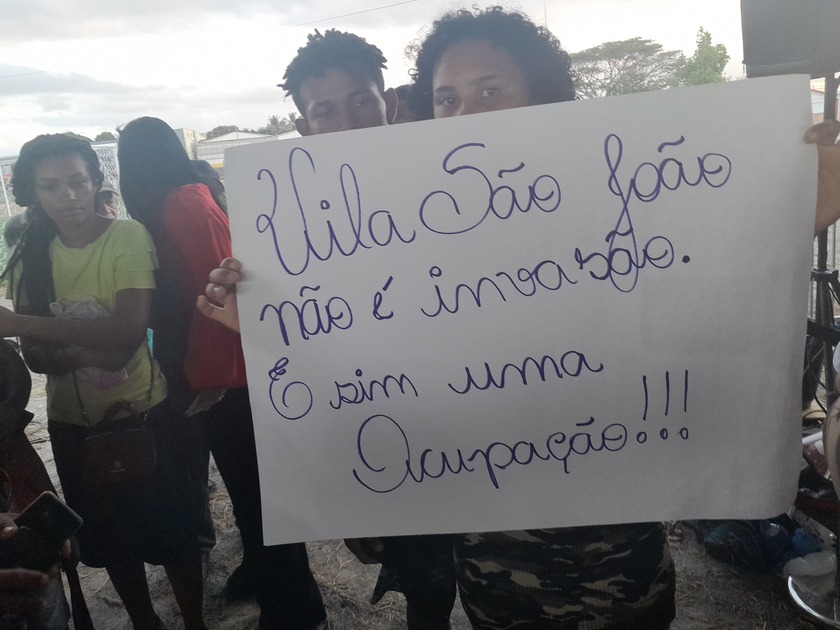 Vila São João
não é invasão.
E sim uma
Ocupação!!!